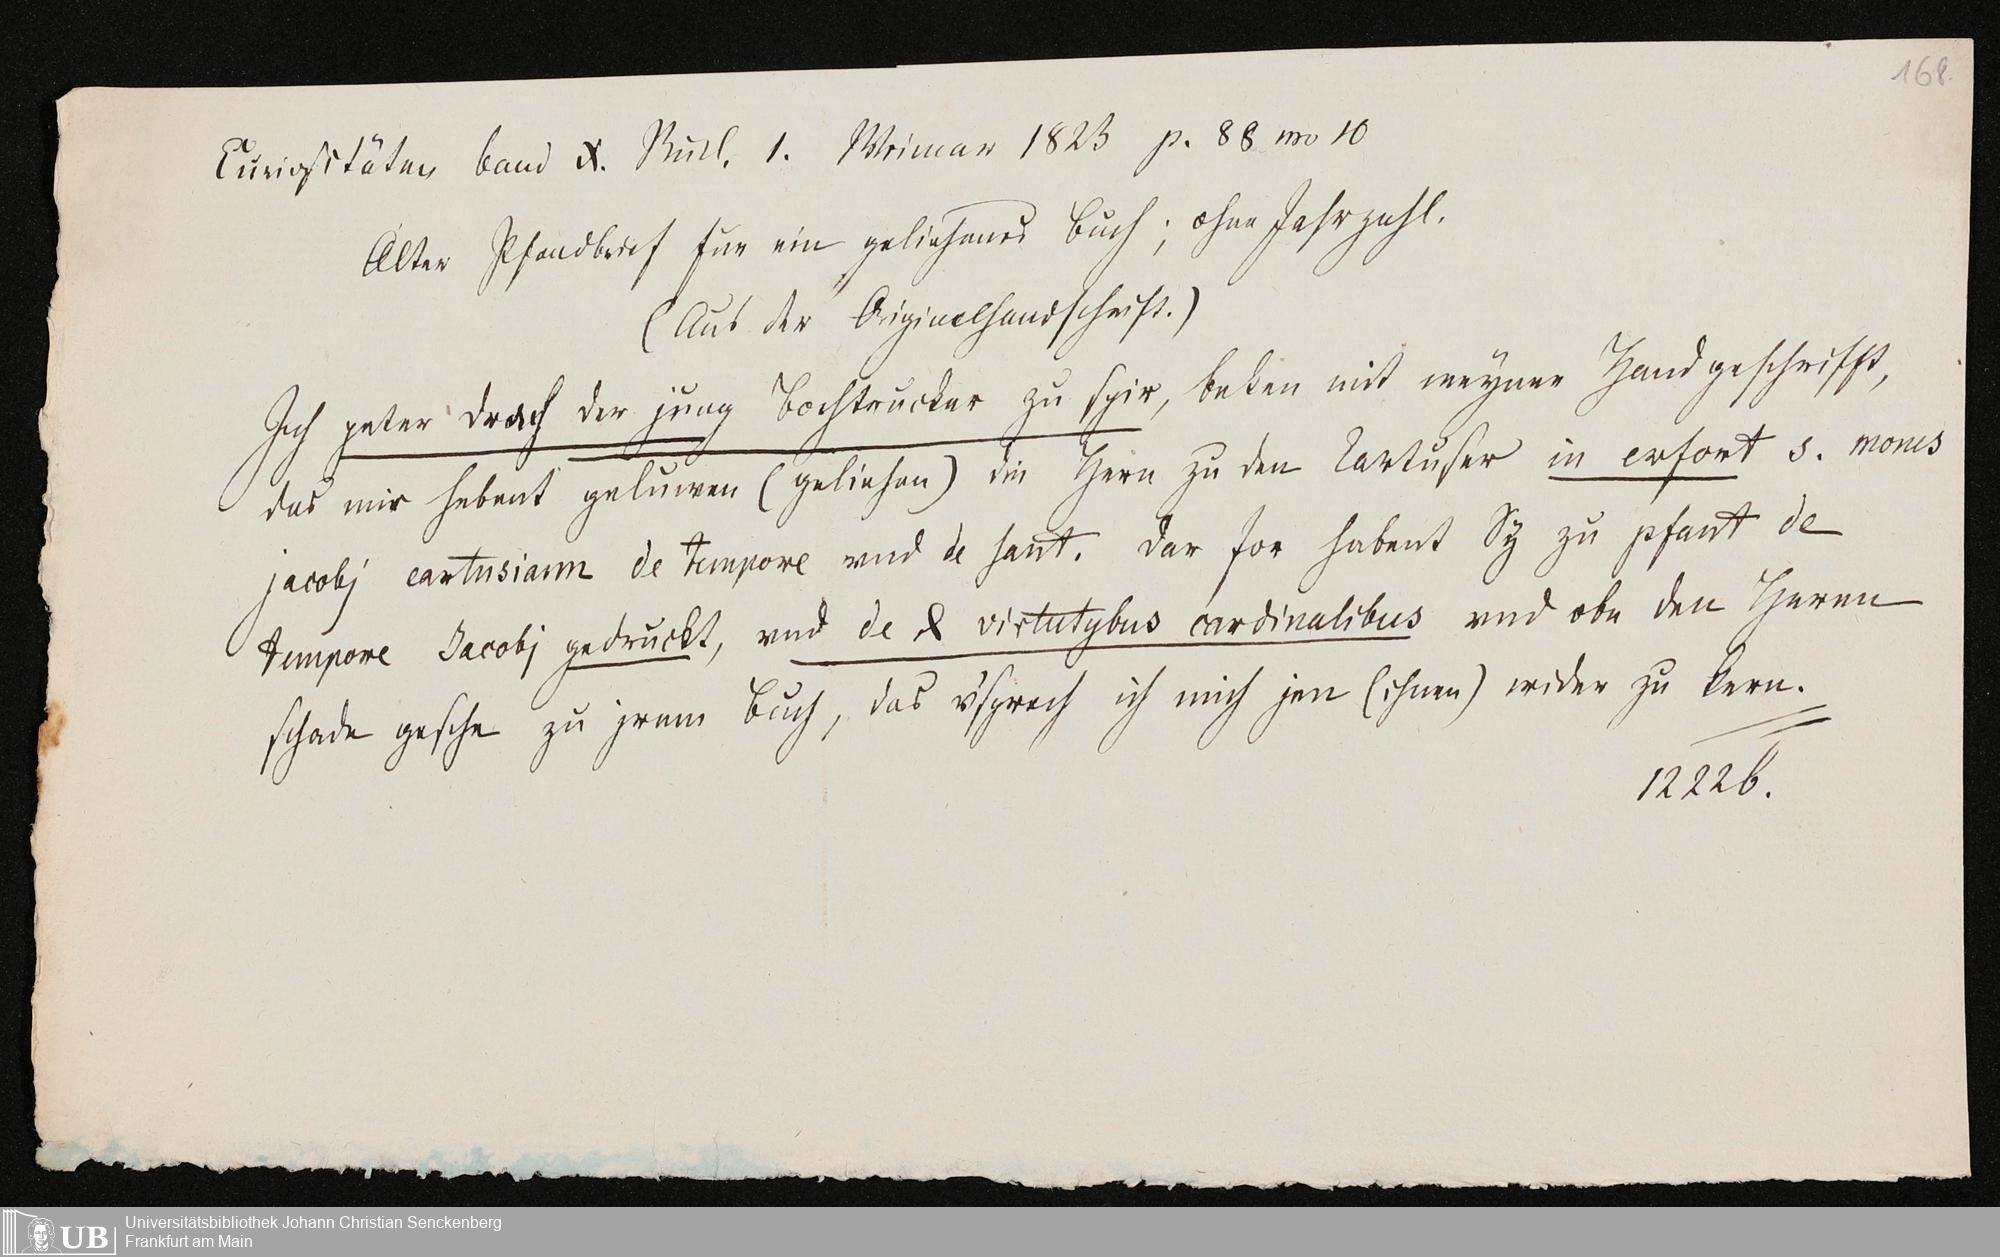 168.
Curiositäten band X. Stück. 1. Weimar 1823 p. 88 nro 10
Alter Pfandbrief fur ein geliehenes Buch; ohne Jahrzahl.
(Aus der Originalhandschrift.)
Ich peter drach der jung bochtrucker zu spir, beken mit meyner Handgeschrifft,
das mir hebent geluwen (geliehen) die Hern zu den Cartuser in erfort s. mones
jacobj cartusiann de tempore vnd de sant. dar for habent Sy zu pfant de
tempore Jacobj gedruckt, vnd de virtutybus cardinalibus vnd obe den Heren
schade geschе zu jrem Buch, das v'sprech ich mich jen (ihnen) wider zu kern.
12226.
Universitätsbibliothek Johann Christian Senckenberg
Frankfurt am Main
UB